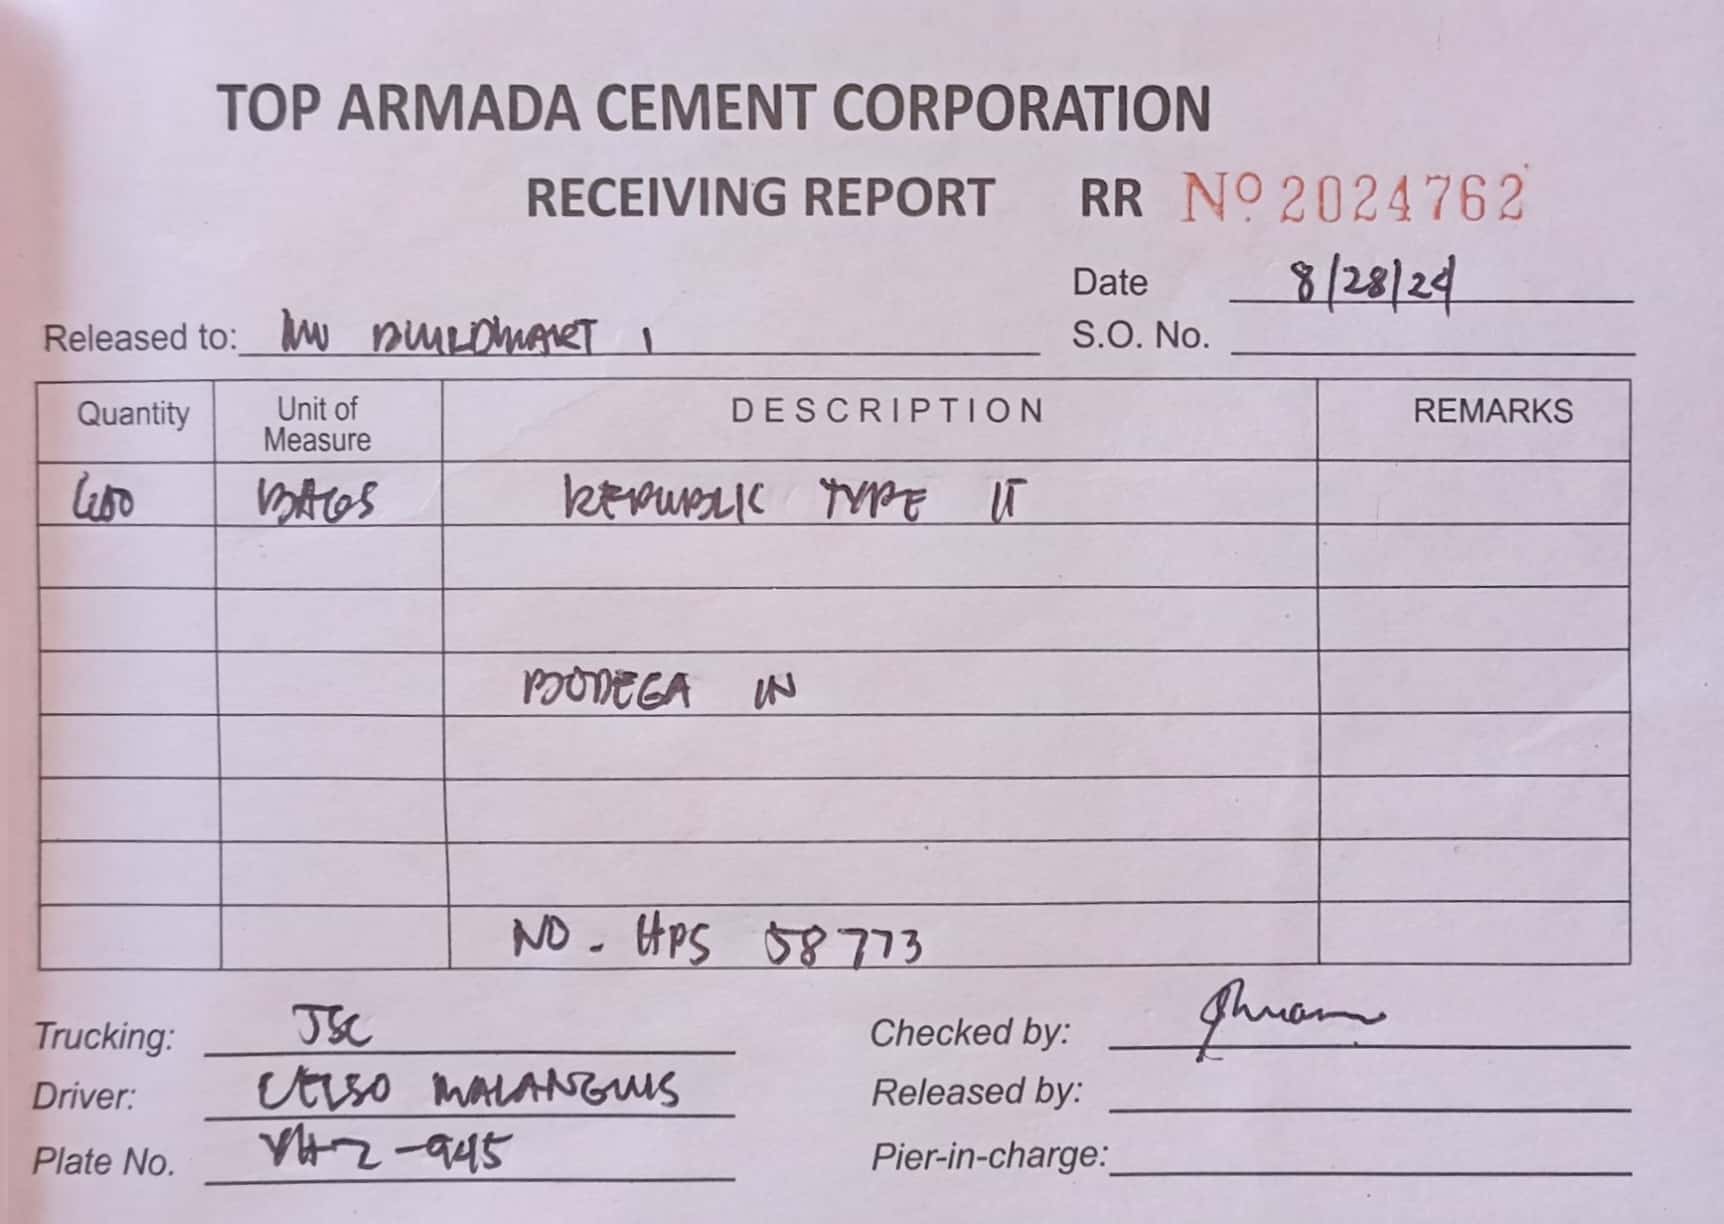 TOP ARMADA CEMENT CORPORATION
RECEIVING REPORT RR Nº 2024762
Date 8/28/24
Released to: BUILDMART 1 S.O. No.
Quantity Unit of Measure DESCRIPTION REMARKS
BAGS REPUBLIC TYPE
BODEGA IN
NO - HPS 58773
Trucking: JSC Checked by:
Driver: CELSO MALANGUIS Released by:
Plate No. -945 Pier-in-charge: